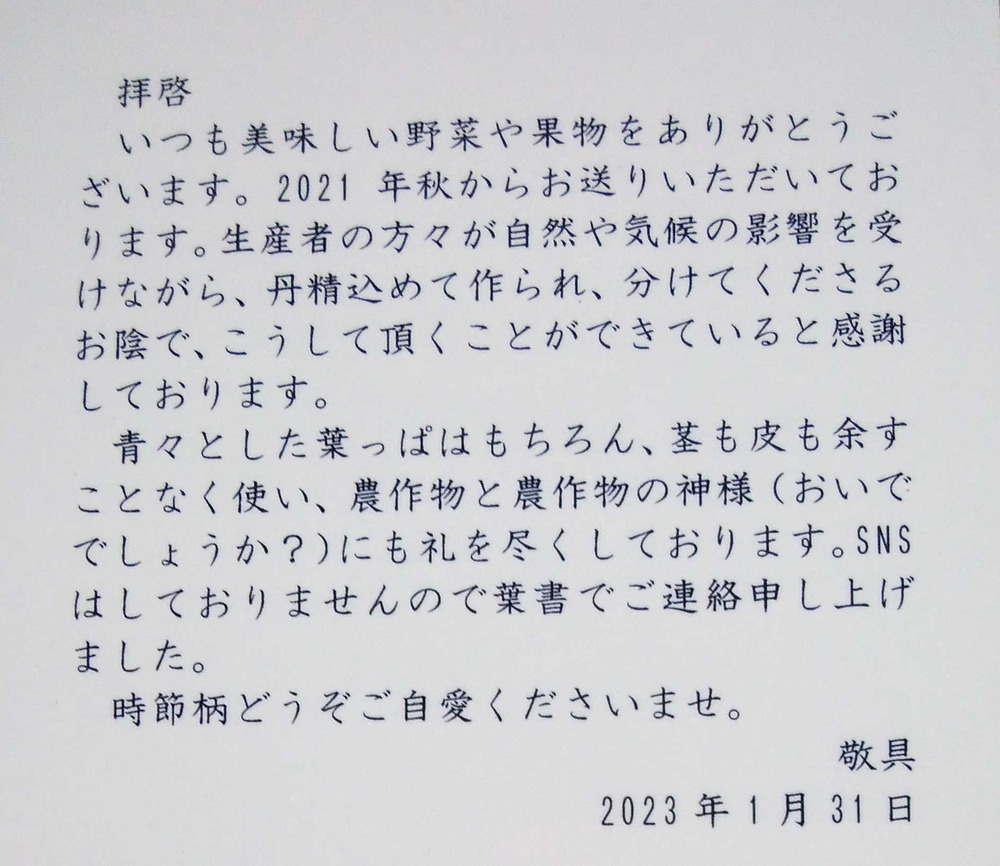 拝啓
いつも美味しい野菜や果物をありがとうご
ざいます。2021 年秋からお送りいただいてお
ります。生産者の方々が自然や気候の影響を受
けながら、丹精込めて作られ、分けてくださる
お陰で、こうして頂くことができていると感謝
しております。
青々とした葉っぱはもちろん、茎も皮も余す
ことなく使い、農作物と農作物の神様（おいで
でしょうか？)にも礼を尽くしております。SNS
はしておりませんので葉書でご連絡申し上げ
ました。
時節柄どうぞご自愛くださいませ。
敬具
2023 年 1 月 31 日